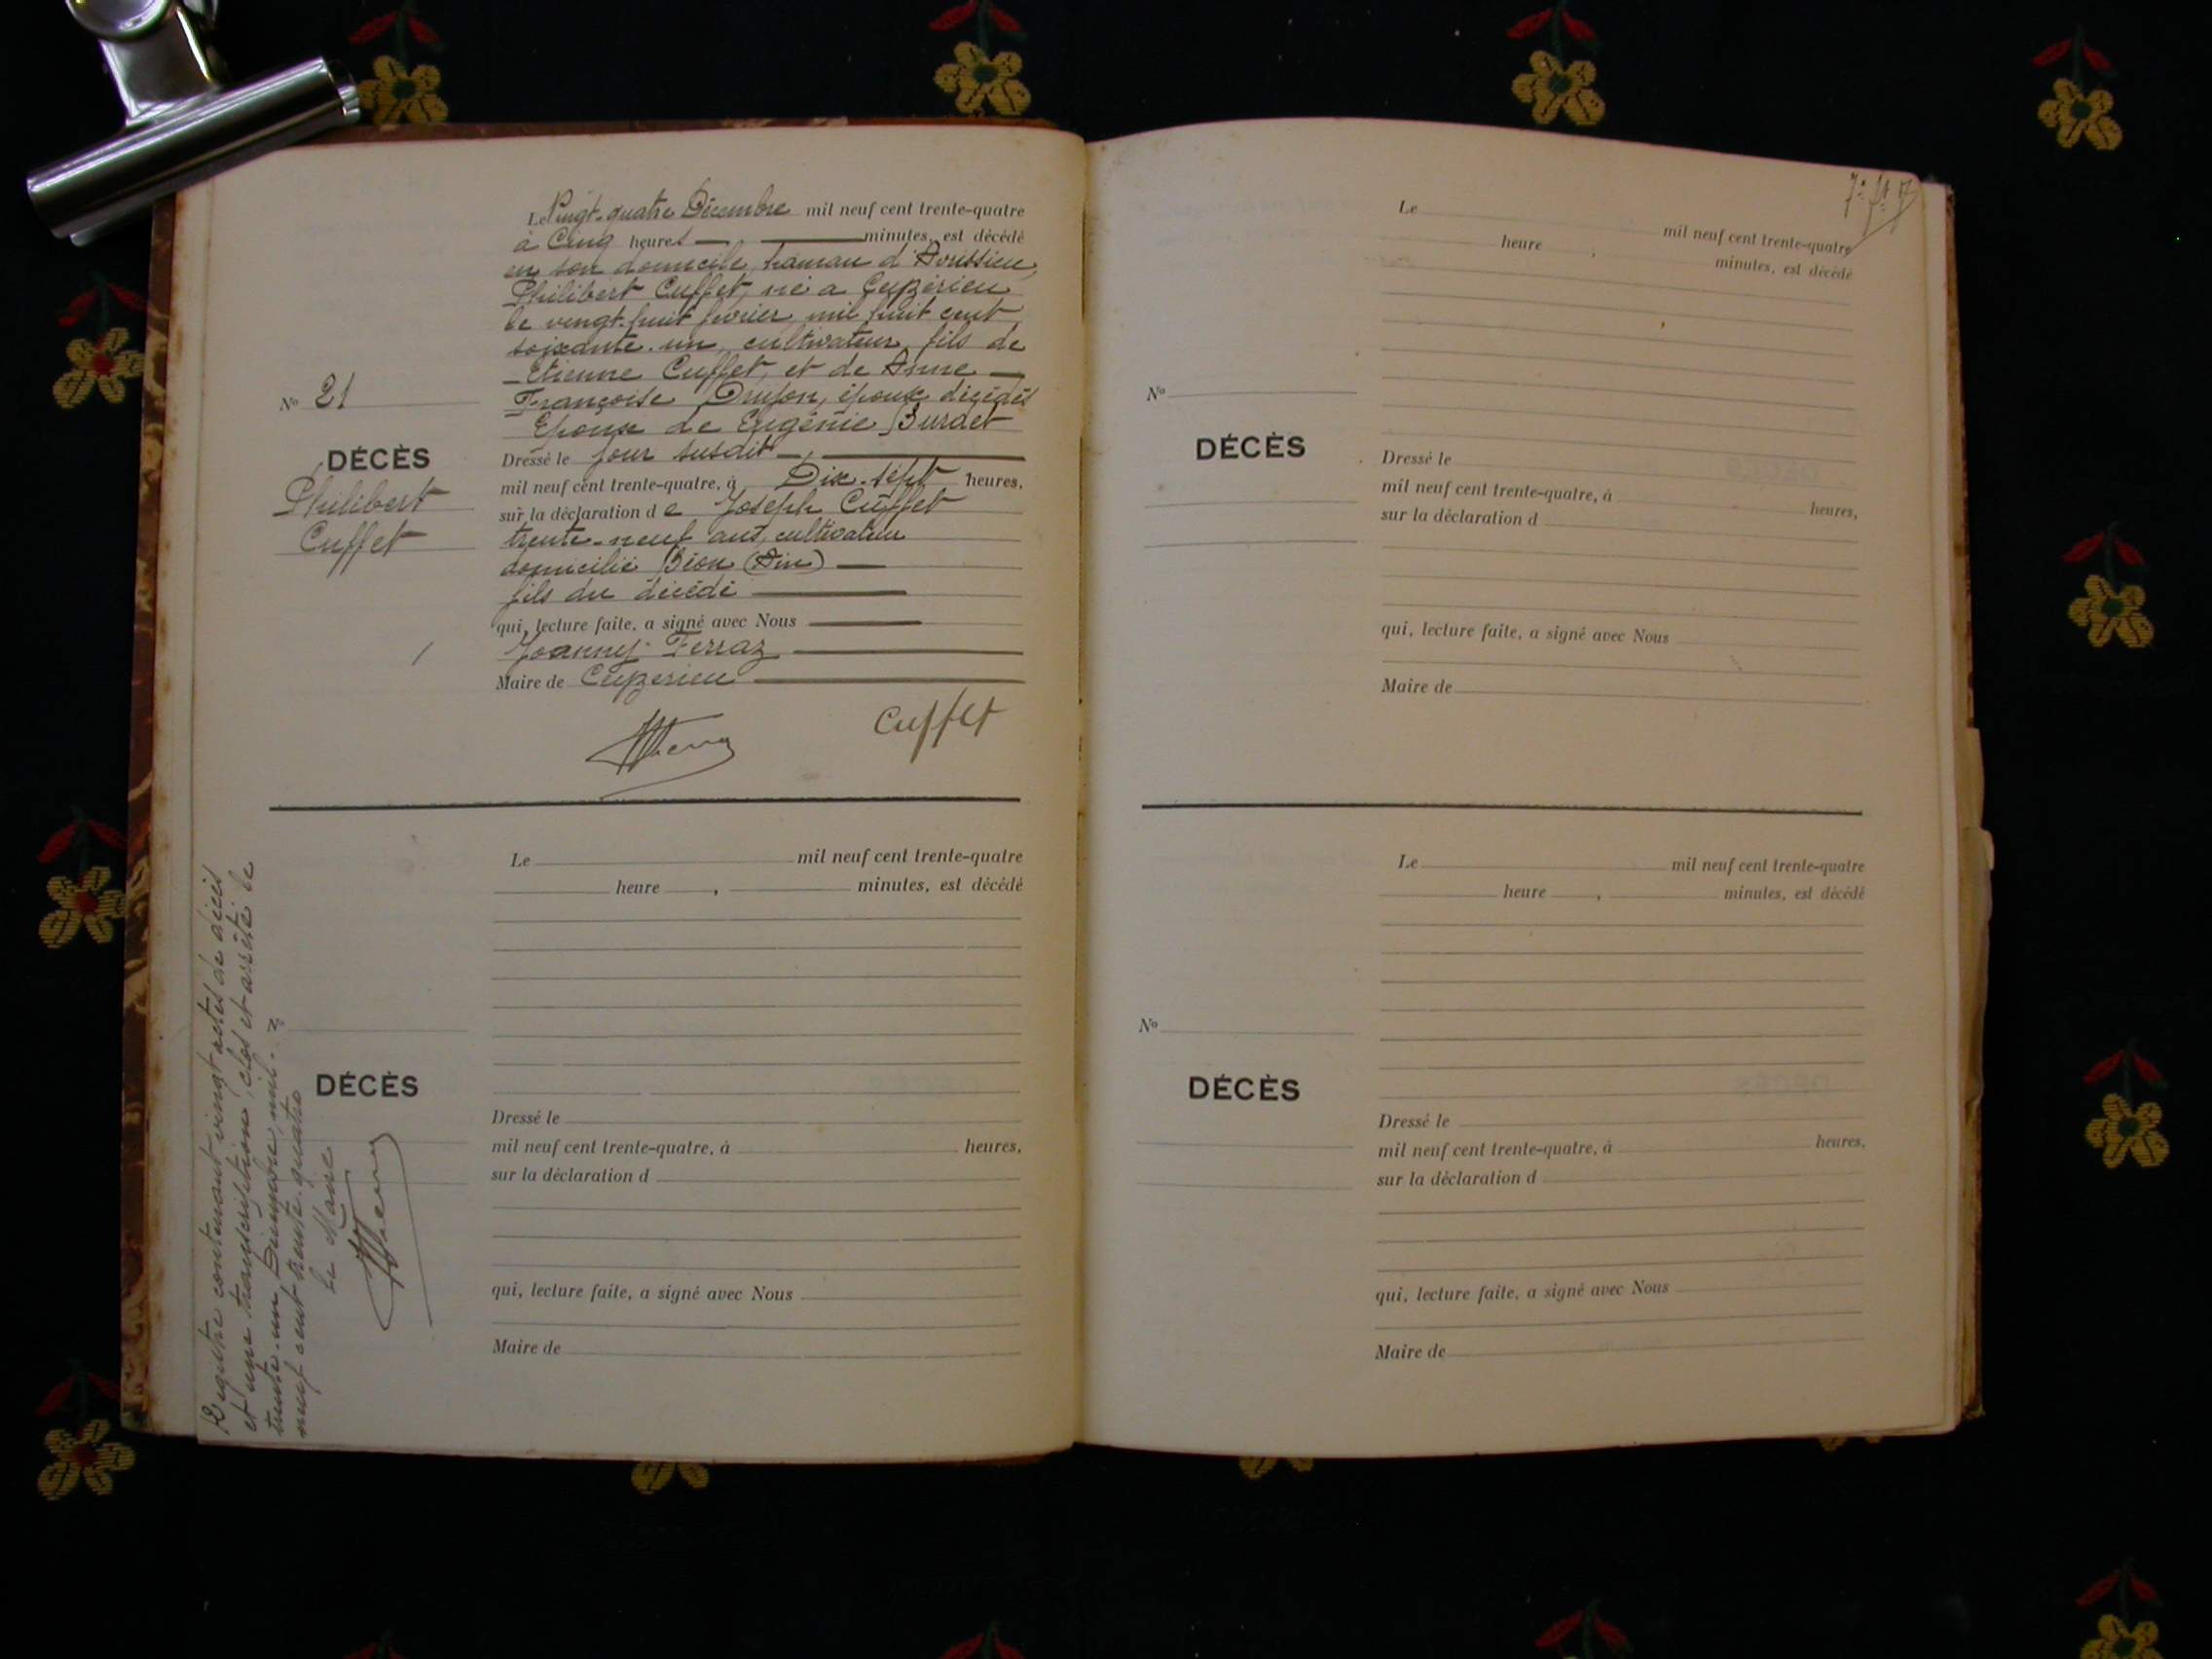 Le Vingt-quatre Décembre mil neuf cent trente-quatre
à Cinq heures minutes, est décédé
en son domicile, hameau d'Avrissieu,
Philibert Cuffet, né à Ceyzérieu
le vingt-huit février mil huit cent
soixante-un, cultivateur, fils de
Etienne Cuffet, et de Anne
Françoise époux décédés
Epoux de Eugénie Burdet
Nº 21
DÉCÈS
Philibert
Cuffet
Dressé le jour susdit
mil neuf cent trente-quatre, à Dix-sept heures,
sur la déclaration de Joseph Cuffet
trente-neuf ans, cultivateur
domicilié Béon (Ain)
fils du décédé
qui, lecture faite, a signé avec Nous
Joanny Ferraz
Maire de Ceyzérieu
Cuffet
Le mil neuf cent trente-quatre
heure , minutes, est décédé
DÉCÈS
Dressé le
mil neuf cent trente-quatre, à heures,
sur la déclaration d
qui, lecture faite, a signé avec Nous
Maire de
Registre contenant vingt actes de décès
et une transcription, clos et arrêté le
trente-un Décembre, mil-
neuf cent trente-quatre
Le Maire
Le mil neuf cent trente-quatre
heure , minutes, est décédé
Nº
DÉCÈS
Dressé le
mil neuf cent trente-quatre, à heures,
sur la déclaration d
qui, lecture faite, a signé avec Nous
Maire de
Le mil neuf cent trente-quatre
heure , minutes, est décédé
Nº
DÉCÈS
Dressé le
mil neuf cent trente-quatre, à heures,
sur la déclaration d
qui, lecture faite, a signé avec Nous
Maire de